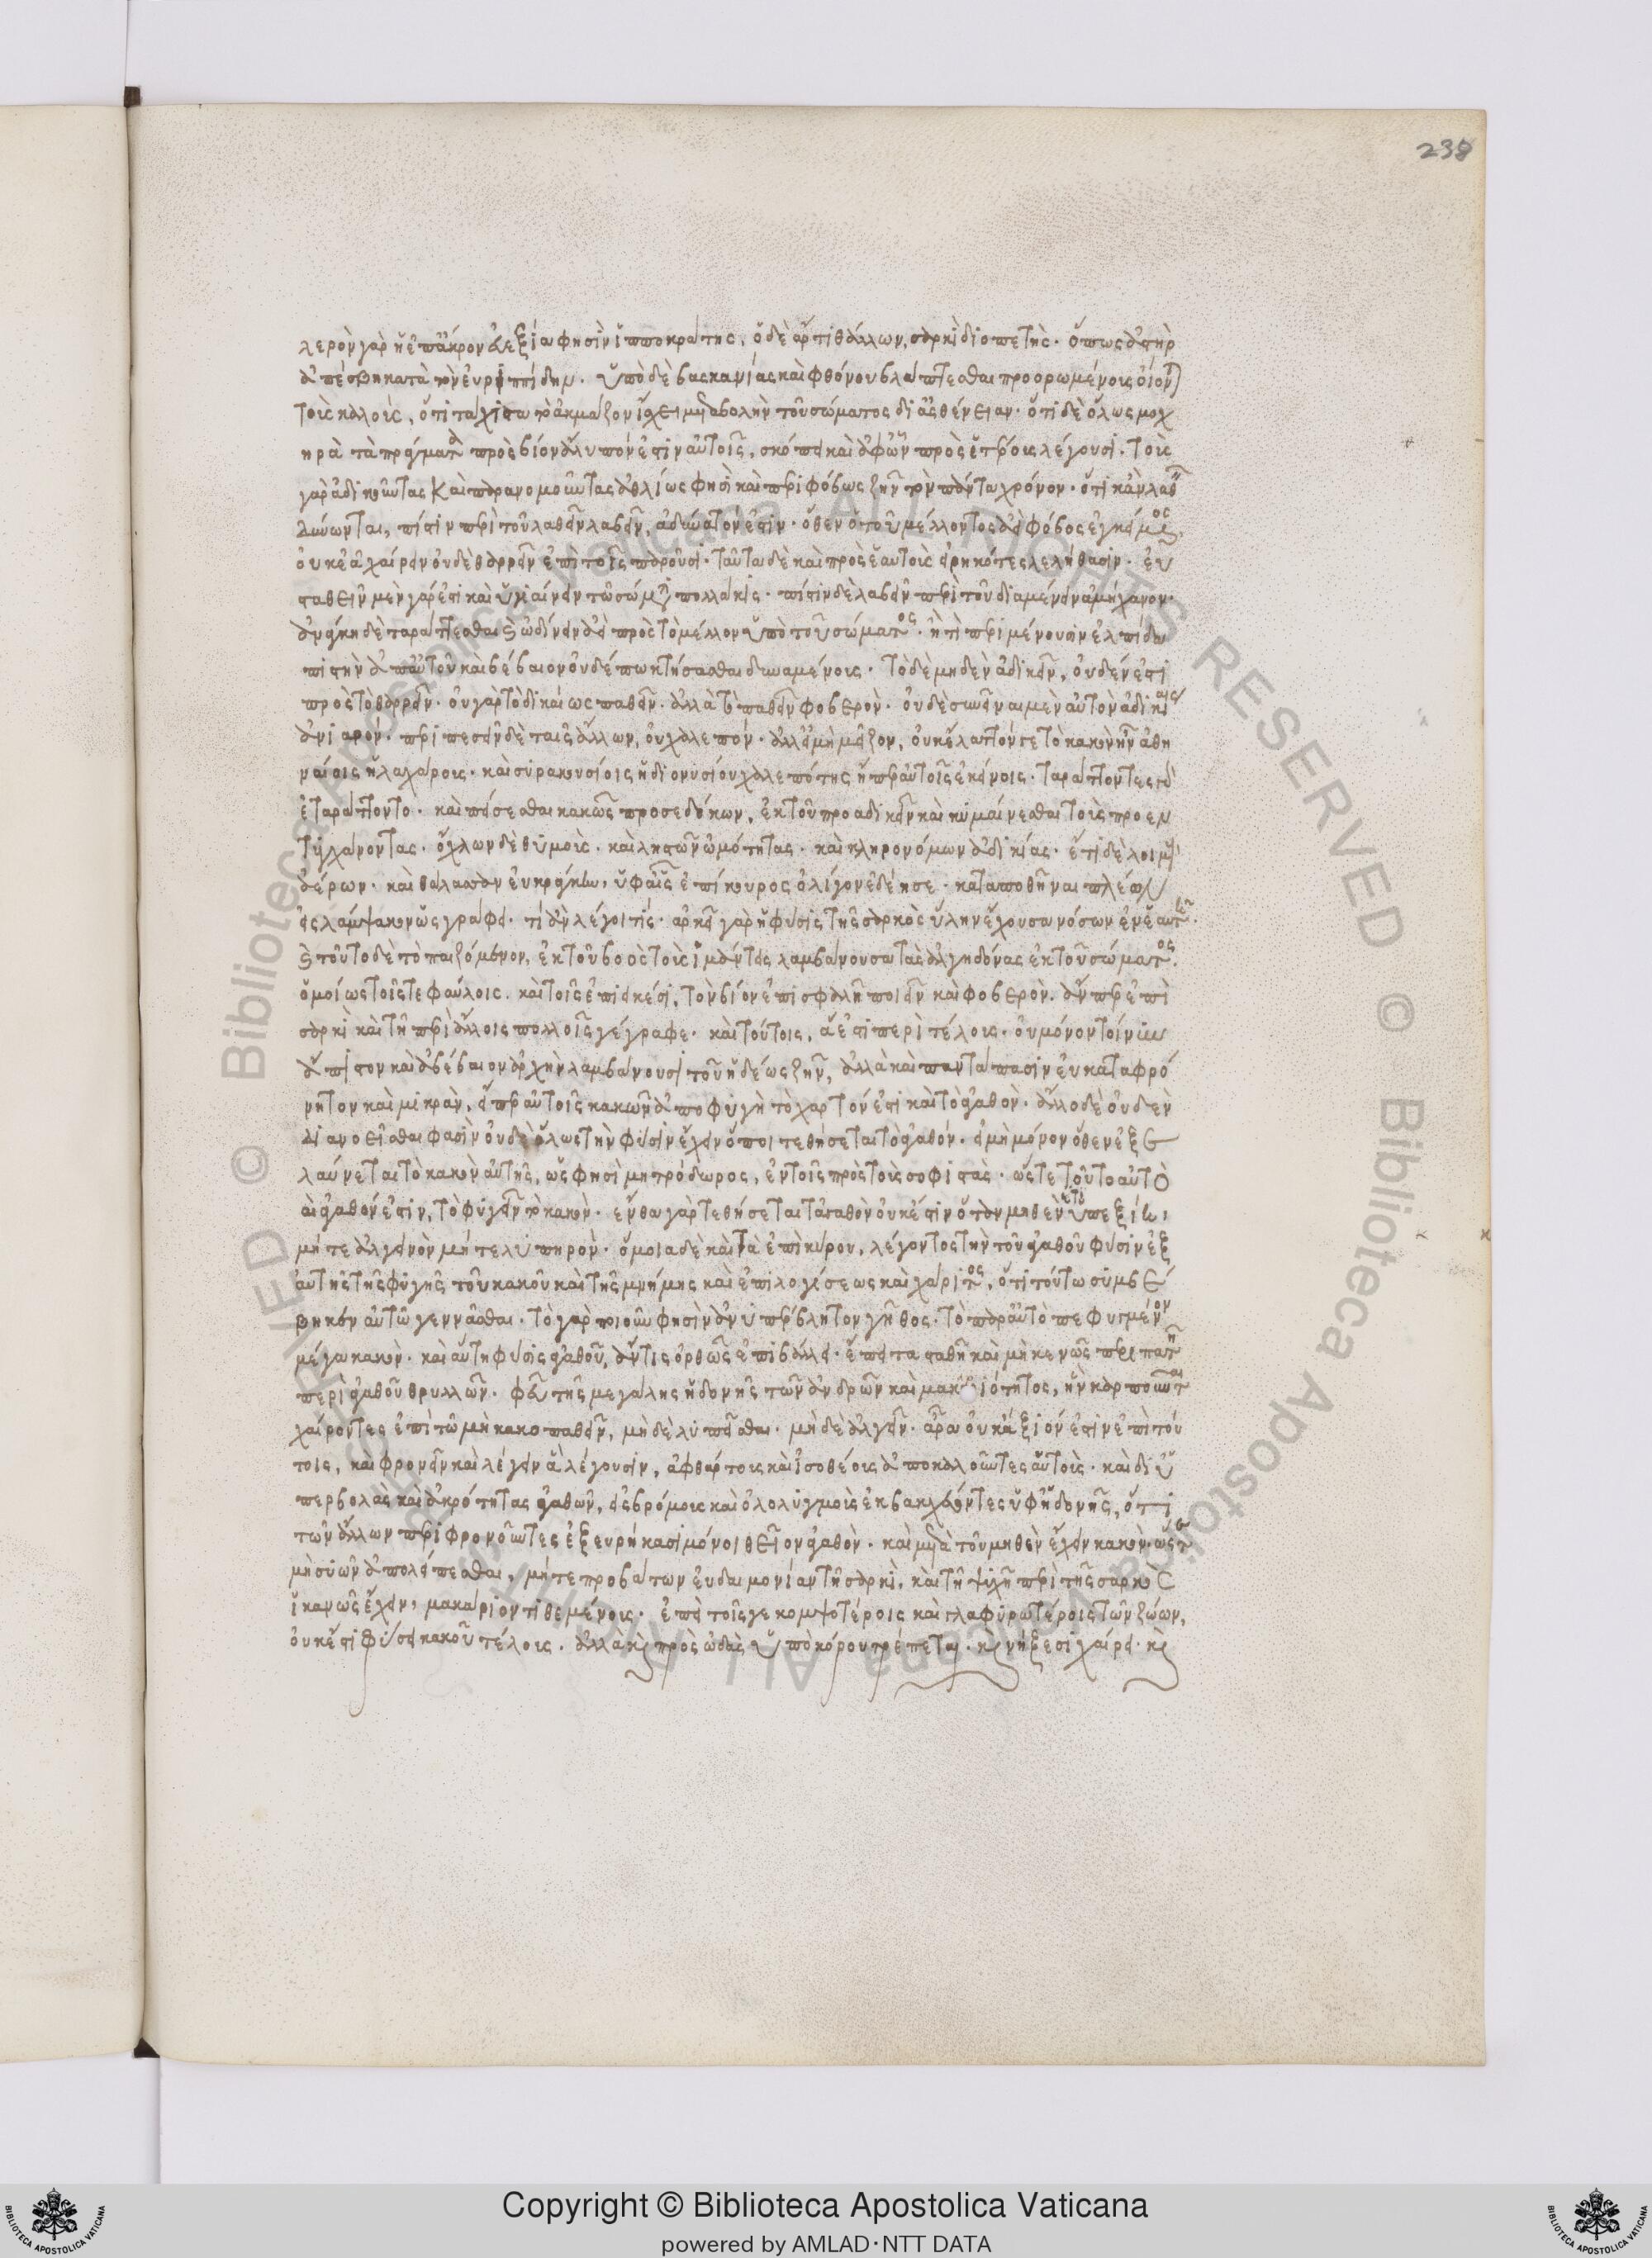 λερὸν γὰρ ἡ ἐπ' ἄκρον εὐεξία φησὶν ἱπποκράτης, ὁ δὲ ἄρτι θάλλων, σαρκὶ διοπετὴς. ὅπως ἀστὴρ
ἀπέσβη κατὰ τὸν εὐριππίδην. ὑπὸ δὲ βασκανίας καὶ φθόνου βλάπτεσθαι προορωμένους οἴονται
τοὺς καλοὺς, ὅτι τάχιστα τὸ ἀκμάζον ἴσχει μεταβολὴν τοῦ σώματος δι' ἀσθένειαν. ὅτι δὲ ὅλως μοχ
ηρὰ τὰ πράγματα πρὸς βίον ἄλυπόν ἐστιν αὐτοῖς, σκόπει καὶ ἀφ' ὧν πρὸς ἑτέρους λέγουσι. τοὺς
γὰρ ἀδικοῦντας καὶ παρανομοῦντας ἀθλίως φησὶ καὶ περιφόβως ζῆν τὸν πάντα χρόνον. ὅτι κἂν λαθεῖν
δύνωνται, πίστιν περὶ τοῦ λαθεῖν λαβεῖν, ἀδύνατόν ἐστιν. ὅθεν ὁ τοῦ μέλλοντος ἀεὶ φόβος ἐγκείμενος,
οὐκ ἐᾶ χαίρειν οὐδὲ θαρρεῖν ἐπὶ τοῖς παροῦσι. ταῦτα δὲ καὶ πρὸς ἑαυτοὺς εἰρηκότες λελήθασιν. εὐ
σταθεῖν μὲν γάρ ἐστι καὶ ὑγιαίνειν τῷ σώματι πολλάκις. πίστιν δὲ λαβεῖν περὶ τοῦ διαμένειν ἀμήχανον.
ἀνάγκη δὲ ταράττεσθαι καὶ ὠδίνειν ἀεὶ πρὸς τὸ μέλλον ὑπὸ τοῦ σώματος. ἢ τί περιμένουσιν ἐλπίδα
πιστὴν ἀπ' αὐτοῦ καὶ βέβαιον οὐδέπω κτήσασθαι δυναμένοις. τὸ δὲ μηδὲν ἀδικεῖν, οὐδέν ἐστι
πρὸς τὸ θαρρεῖν. οὐ γὰρ τὸ δικαίως παθεῖν. ἀλλὰ τὸ παθεῖν φοβερὸν. οὐδὲ συνεῖναι μὲν αὐτὸν ἀδικίαις
ἀνιαρόν. περιπεσεῖν δὲ ταῖς ἄλλων, οὐ χαλεπόν. ἀλλ' εἰ μὴ μεῖζον, οὐκ ἔλαττόν γε τὸ κακὸν ἦν ἀθη
ναίοις ἡ λαχάρους. καὶ συρακουσίοις ἡ διονυσίου χαλεπότης ἢ περ αὐτοῖς ἐκείνοις. ταράττοντες γὰρ
ἐταράττοντο. καὶ πείσεσθαι κακῶς προσεδόκων, ἐκ τοῦ προαδικεῖν καὶ κυμαίνεσθαι τοὺς προεν
τυγχάνοντας. ὄχλων δὲ θυμοὺς. καὶ λῃστῶν ὠμότητας. καὶ κληρονόμων ἀδικίας. ἔτι δὲ λοιμοὺς
ἀέρων. καὶ θάλασσαν εὐκράγην, ὑφ' αἷς ἐπίκουρος ὀλίγον ἐδέησε. καταποθῆναι πλέων
εἰς λάμψακον ὡς γράφει. τί ἂν λέγοι τίς. ἀρκεῖ γὰρ ἡ φύσις τῆς σαρκὸς ὕλην ἔχουσα νόσων ἐν ἑαυτῇ.
καὶ τοῦτο δὲ τὸ παιζόμενον, ἐκ τοῦ βοὸς τοὺς ἱμάντας λαμβάνουσα τὰς ἀλγηδόνας ἐκ τοῦ σώματος.
ὁμοίως τοῖς τε φαύλοις. καὶ τοῖς ἐπιεικέσι, τὸν βίον ἐπισφαλῆ ποιεῖν καὶ φοβερὸν. ἄν περ ἐπὶ
σαρκὶ καὶ τῇ περὶ ἄλλοις πολλοῖς γέγραφε. καὶ τούτοις, ἅ ἐστι περὶ τέλους. οὐ μόνον τοίνυν
ἄπιστον καὶ ἀβέβαιον ἀρχὴν λαμβάνουσι τοῦ ἡδέως ζῆν, ἀλλὰ καὶ παντάπασιν εὐκαταφρό
νητον καὶ μικρὰν, εἴπερ αὐτοῖς κακῶν ἀποφυγὴ τὸ χαρτόν ἐστι καὶ τὸ ἀγαθὸν. ἄλλο δὲ οὐδὲν
διανοεῖσθαι φασὶν οὐδὲ ὅλως τὴν φύσιν ἔχειν ὅποι τεθήσεται τὸ ἀγαθόν. εἰ μὴ μόνον ὅθεν ἐξε
λαύνεται τὸ κακὸν αὐτῆς, ὥς φησὶ μητρόδωρος, ἐν τοῖς πρὸς τοὺς σοφιστὰς. ὥστε τοῦτο αὐτὸ
ἀγαθόν ἐστιν, τὸ φυγεῖν τὸ κακόν. ἔνθα γὰρ τεθήσεται τἀγαθὸν οὐκ ἔστιν ὅταν μηθὲν ἔτι ὑπεξίῃ,
μήτε ἀλγεινὸν μήτε λυπηρὸν. ὅμοια δὲ καὶ τὰ ἐπικούρου, λέγοντος τὴν τοῦ ἀγαθοῦ φύσιν ἐξ
αὐτῆς τῆς φυγῆς τοῦ κακοῦ καὶ τῆς μνήμης καὶ ἐπιλογίσεως καὶ χάριτος, ὅτι τούτω συμβέ
βηκεν αὐτῷ γεννᾶσθαι. τὸ γὰρ ποιοῦν φησὶν ἀνυπέρβλητον γῆθος. τὸ παρ' αὐτὸ πεφυγμένον
μέγα κακὸν. καὶ αὕτη φύσις ἀγαθοῦ, ἄν τις ὀρθῶς ἐπιβάλῃ. ἔπειτα σταθῇ καὶ μὴ κενῶς περιπατῇ
περὶ ἀγαθοῦ θρυλλῶν. φεῦ τῆς μεγάλης ἡδονῆς τῶν ἀνδρῶν καὶ μακαριότητος, ἣν καρποῦνται
χαίροντες ἐπὶ τῷ μὴ κακοπαθεῖν, μηδὲ λυπεῖσθαι. μηδὲ ἀλγεῖν. ἆρα οὐκ ἄξιόν ἐστιν ἐπὶ τού
τοις, καὶ φρονεῖν καὶ λέγειν ἃ λέγουσιν, ἀφθάρτους καὶ ἰσοθέους ἀποκαλοῦντες αὑτοὺς. καὶ δι' ὑ
περβολὰς καὶ ἀκρότητας ἀγαθῶν, εἰς βρόμους καὶ ὀλολυγμοὺς ἐκβακχεύοντες ὑφ' ἡδονῆς, ὅτι
τῶν ἄλλων περιφρονοῦντες ἐξευρήκασι μόνοι θεῖον ἀγαθὸν. καὶ μέγα τοῦ μηθὲν ἔχειν κακὸν. ὥστε
μὴ συῶν ἀπολείπεσθαι, μήτε προβάτων εὐδαιμονίαν τῇ σαρκὶ, καὶ τῇ ψυχῇ περὶ τῆς σαρκὸς
ἱκανῶς ἔχειν, μακάριον τιθεμένους. ἐπεὶ τοῖς γε κομψοτέροις καὶ γλαφυρωτέροις τῶν ζώων,
οὐκ ἔστι φύσει κακοῦ τέλους. ἀλλὰ καὶ πρὸς ᾠδὰς ὑπὸ κόρου τρέπεται. καὶ νήξεσι χαίρει. καὶ